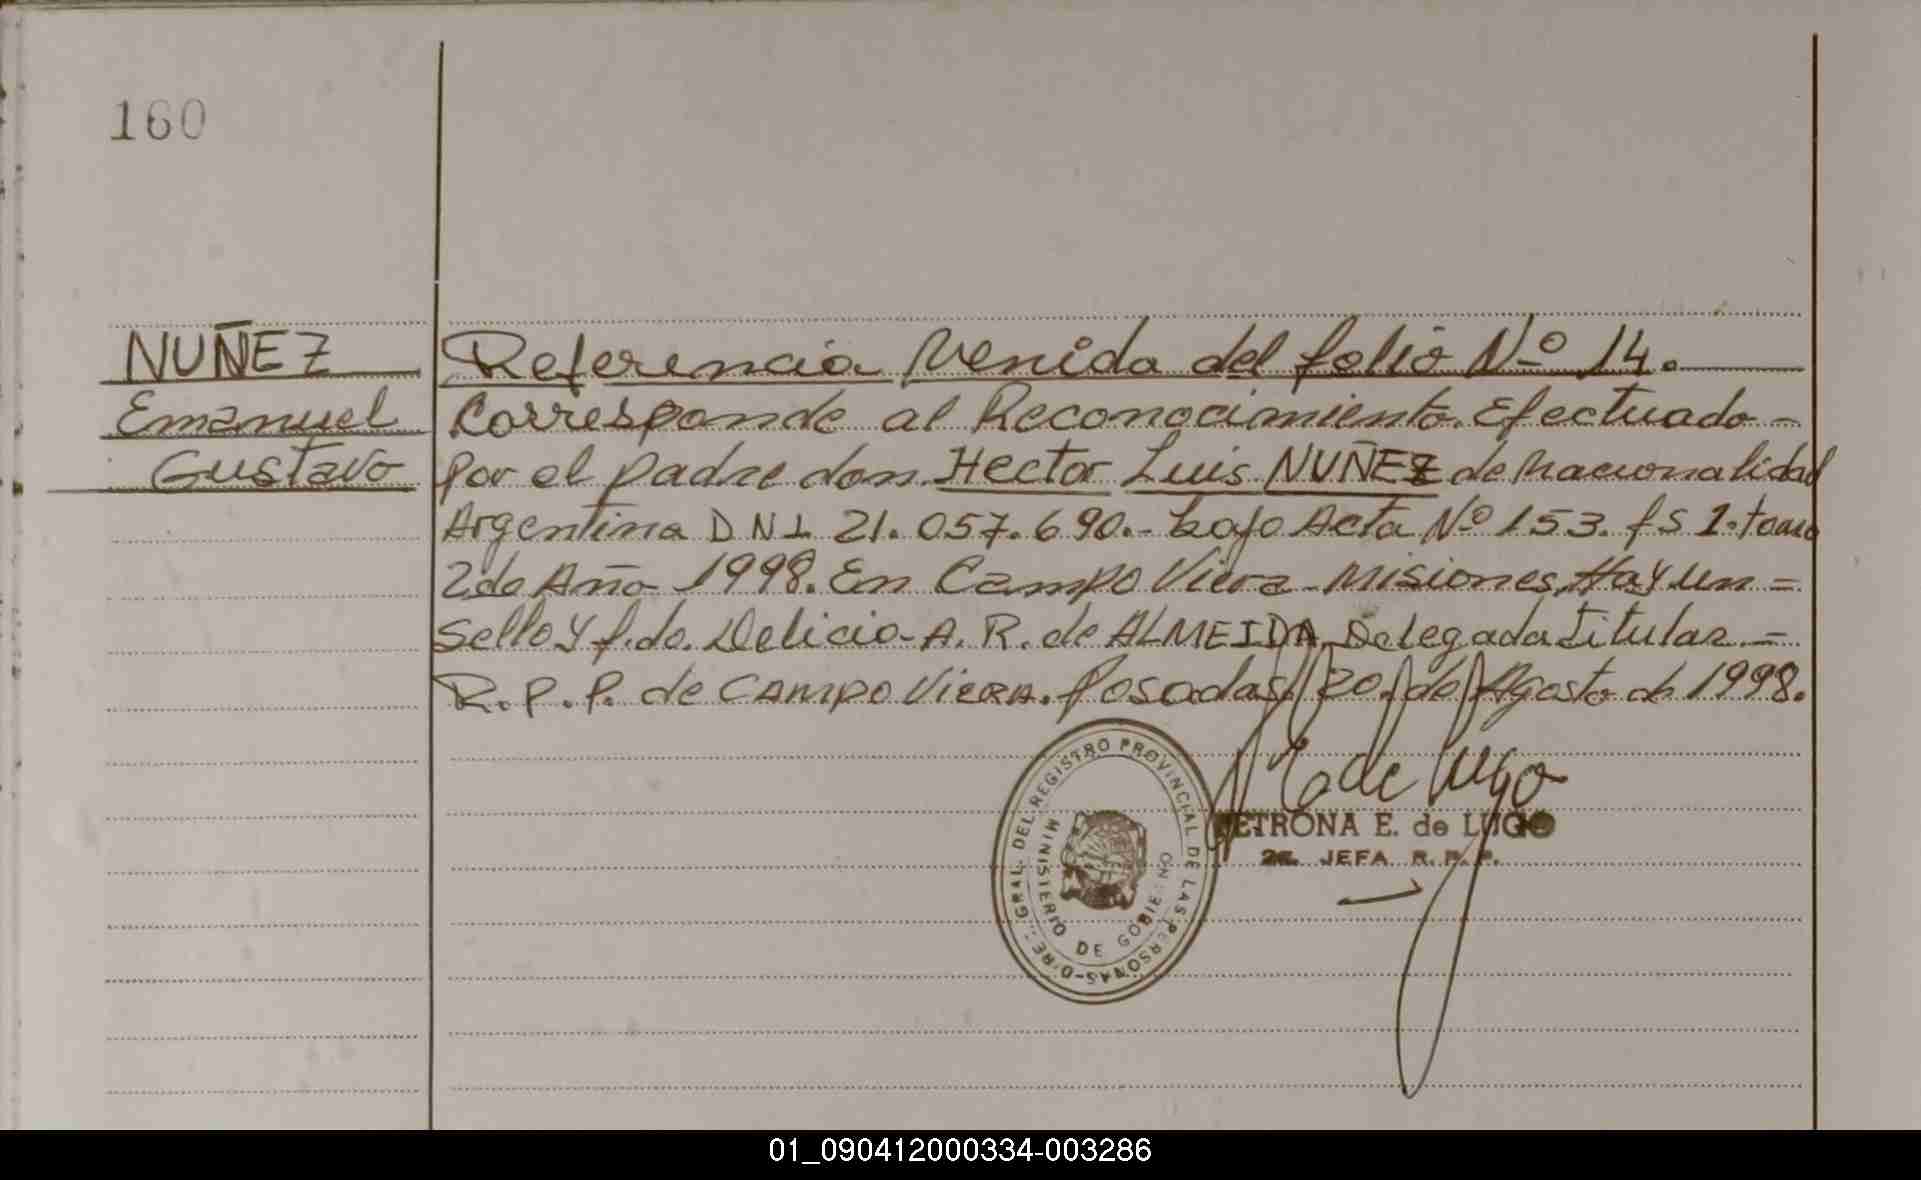 160
NUÑEZ
Emanuel
Gustavo
Referencia Venida del folio Nº 14.
Corresponde al Reconocimiento Efectuado -
Por el padre don Hector Luis NUÑEZ de nacionalidad
Argentina DNI 21.057.690.- bajo Acta Nº 153. fs 1. tomo
2do Año 1998. En Campo Viera - Misiones, Hay un =
Sello y f.do. Delicio - A. R. de ALMEIDA, Delegada Titular. =
R.P.P. de CAMPO VIERA. Posadas, 20, de Agosto de 1998.
E de Lugo
PETRONA E. de LUGO
2a. JEFA R. P. P.
DIREC. GRAL. DEL REGISTRO PROVINCIAL DE LAS PERSONAS-
MINISTERIO DE GOBIERNO
01_090412000334-003286